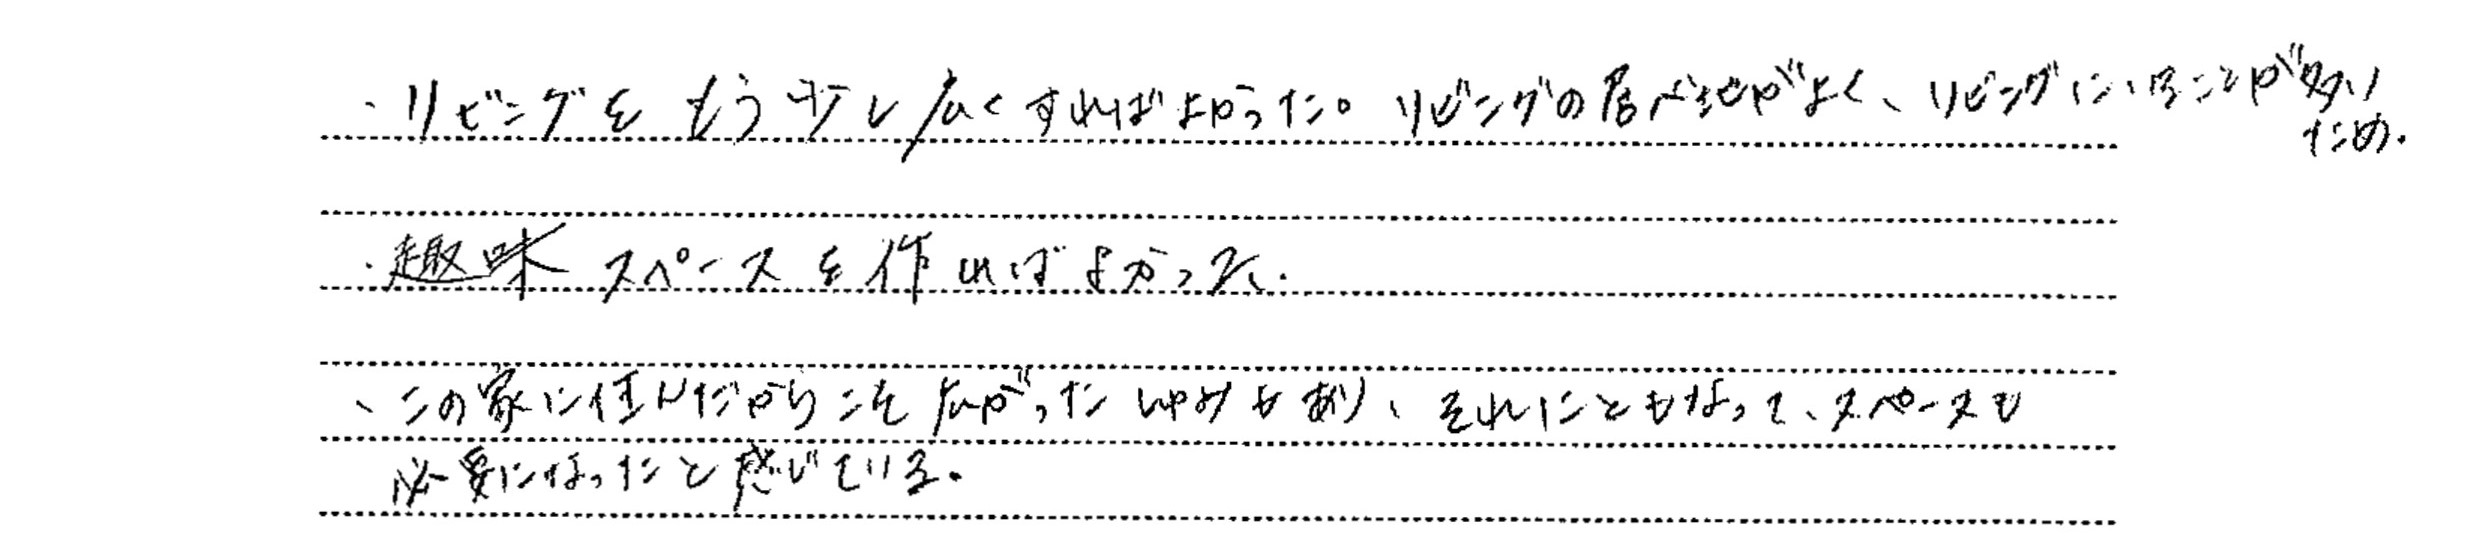 ・リビングをもう少し広くすればよかった。リビングの居心地がよく、リビングにいることが多い
ため.
・趣味スペースを作ればよかった.
・この家に住んだからこそ広がったしゅみもあり、それにともなって、スペースも
必要になったと感じている.